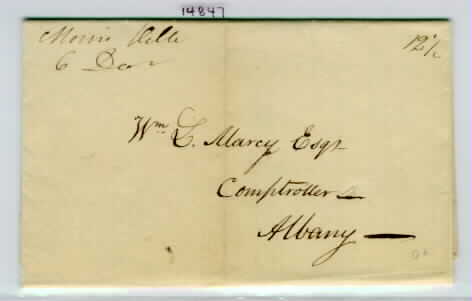 14847
Morris Ville
6 Decr
12½
Wm L. Marcy Esqr
Comptroller
Albany